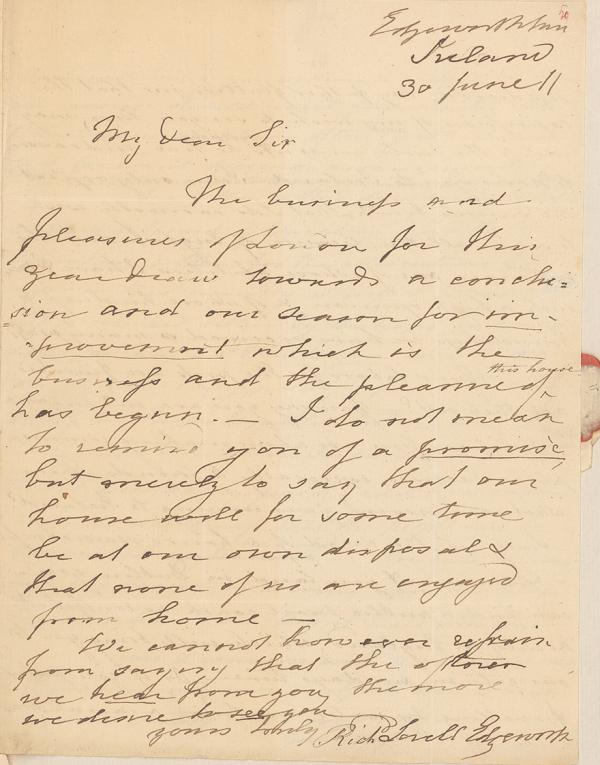 50
Edgeworthtown
Ireland
30 June 11
My dear Sir
The business and
pleasures of London for this
year draw towards a conclu=
=sion and our season for im-
-provement which is the
business and the pleasure of this house
has begun. — I do not mean
to remind you of a promise,
but merely to say that our
house will for some time
be at our own disposal &
that none of us are engaged
from home —
We cannot however refrain
from saying that the oftener
we hear from you the more
we desire to see you
yours truly Richd Lovell Edgeworth